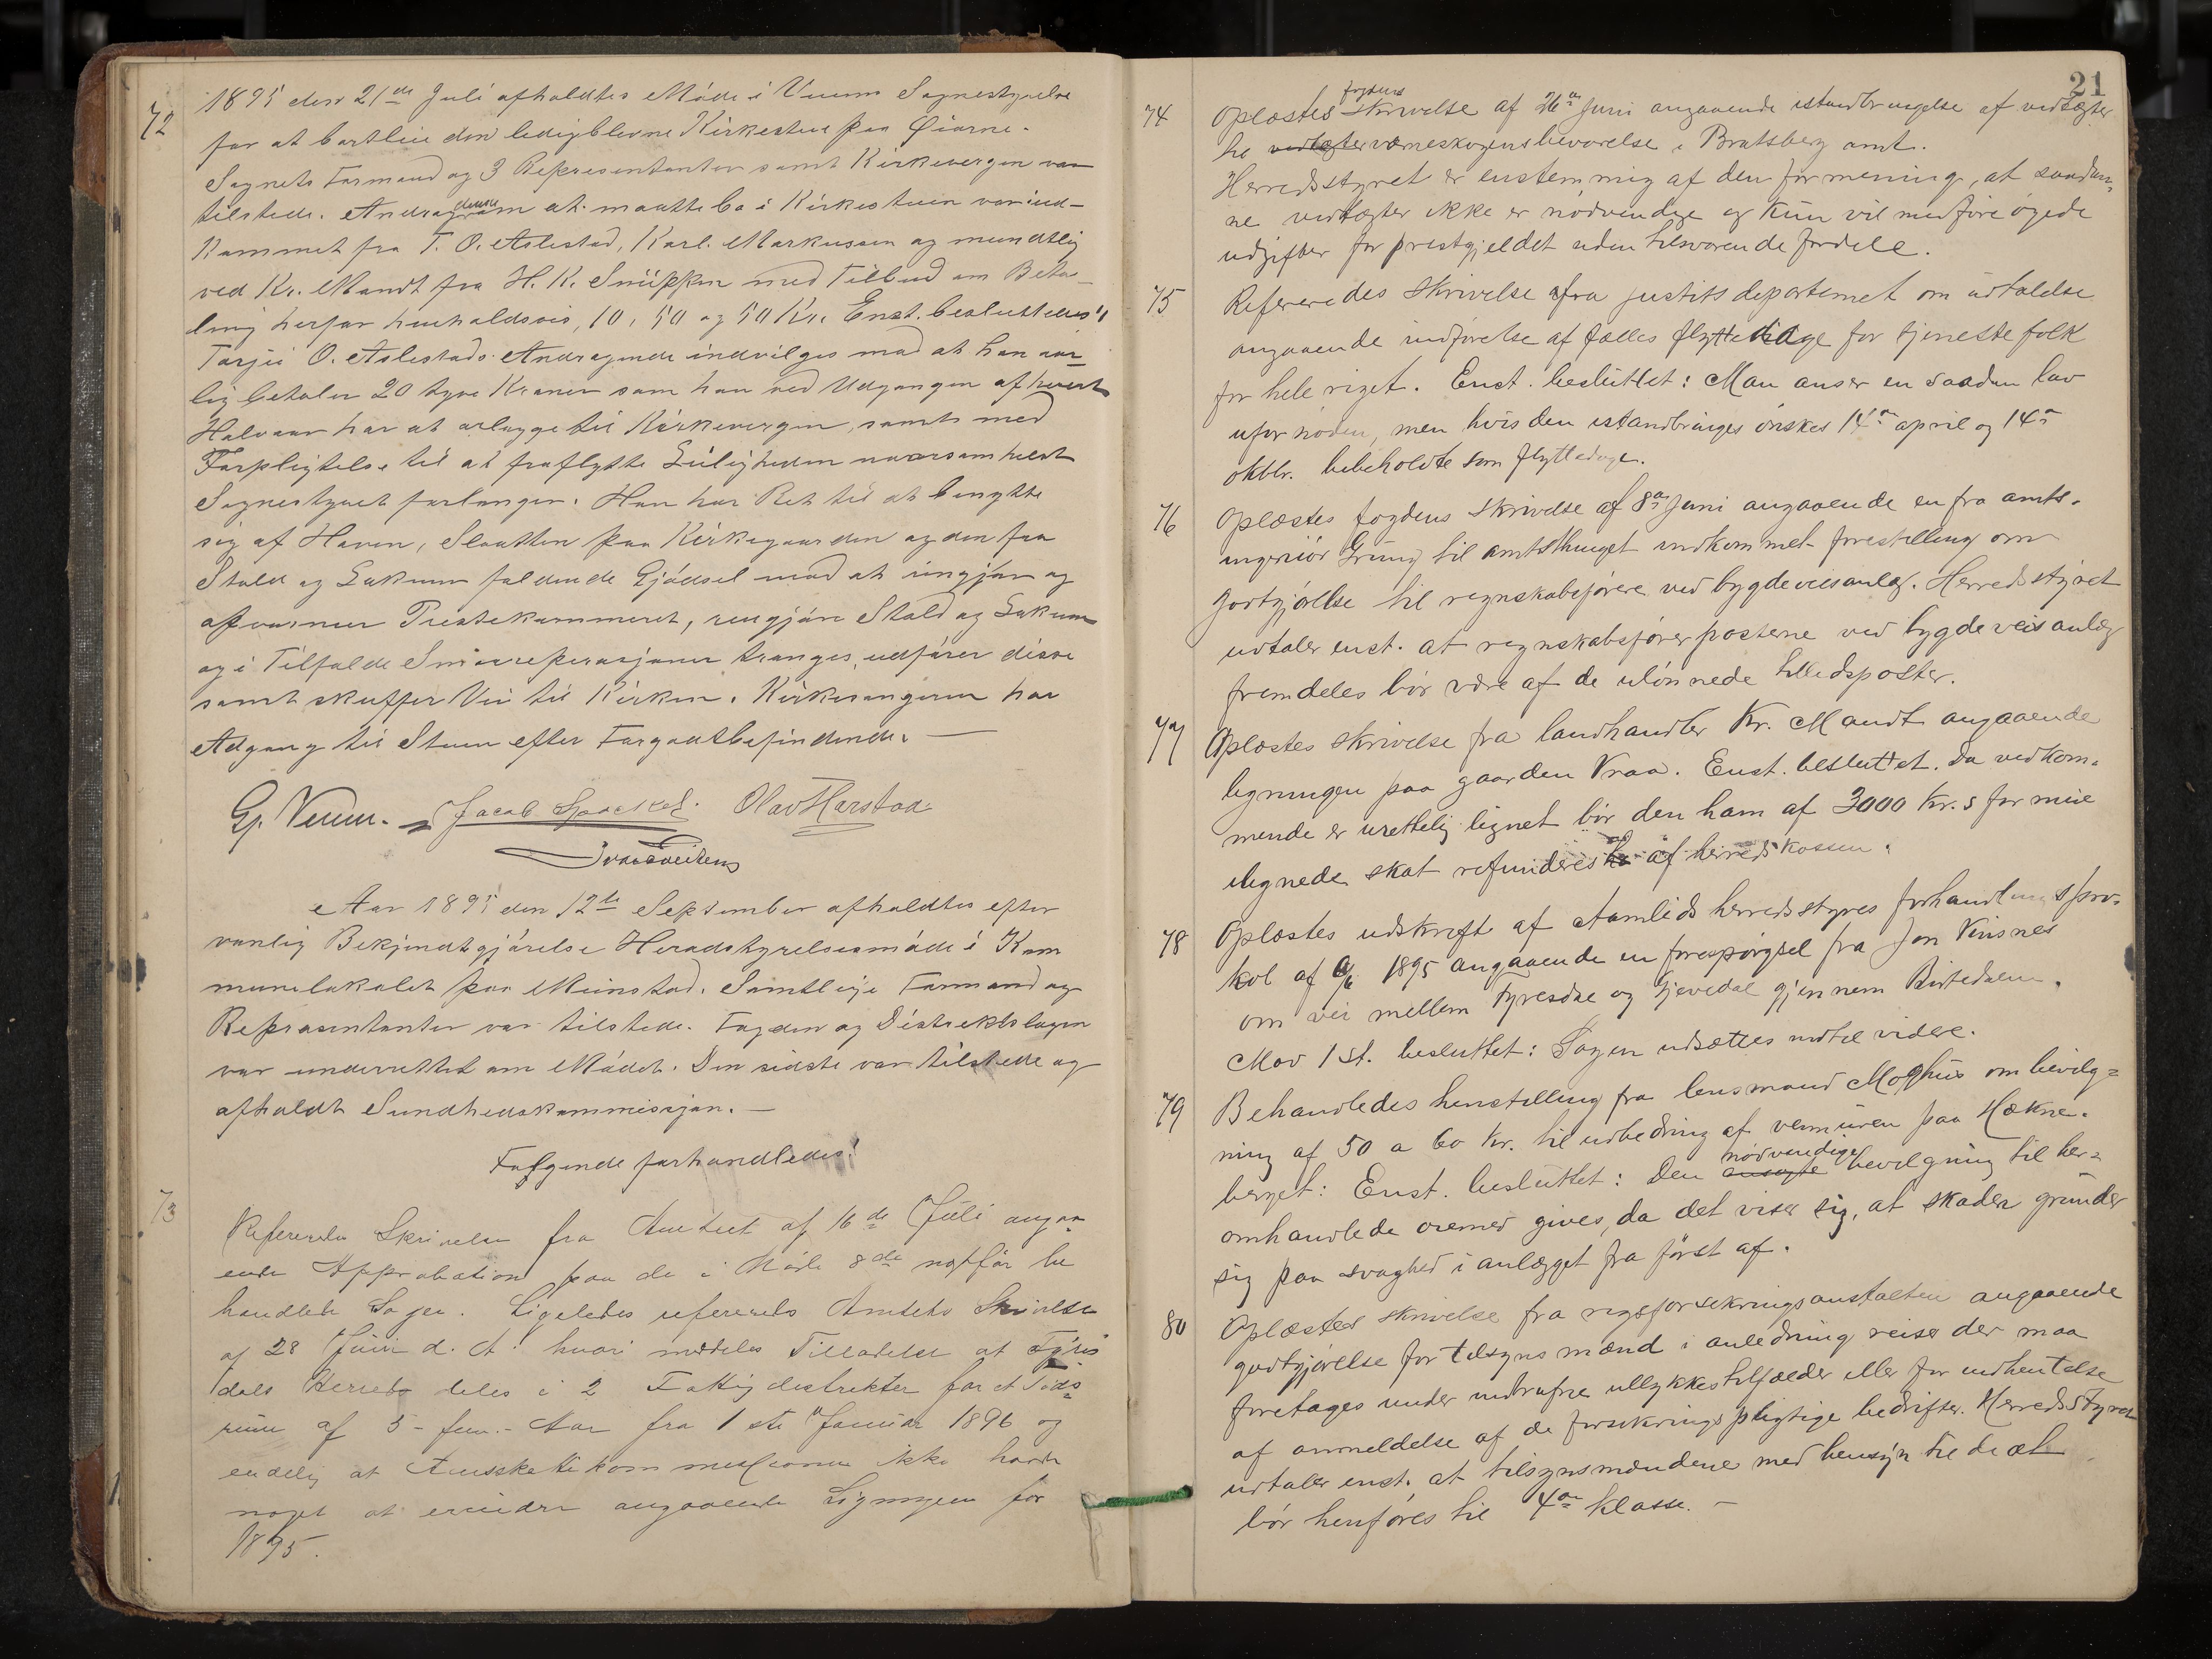 72
1895 den 21de Juli afholdtes Møde i Veums Sognestyrelse
for at bortleie den ledigblevne Kirkestue paa Øiarne.
Sognets Formænd og 3 Repræsentanter samt Kirkevergen var
tilstede. Andragende om at maatte bo i Kirkestuen var ind-
kommet fra T. O. Aslestad, Karl Markussen og mundtlig
ved Kr. Mandt fra H. K. med Tilbud om Beta-
ling herfor henholdsvis, 10, 50 og 50 Kr. Enst. besluttedes:
Tarjei O. Aslestads Andragende indvilges mod at han aar-
lig betaler 20 tyve Kroner som han ved Udgangen af hvert
Halvaar har at erlægge til Kirkevergen, samt med
Forpligtelse til at fraflytte Leiligheden naarsomhelst
Sognestyret forlanger. Han har Ret til at benytte
sig af Haven, Slaatten paa Kirkegaarden og den fra
Stald og Lokum faldende Gjødsel mod at ringjøre og
opvarmer Prestekammeret, rengjøre Stald og Lokum
og i Tilfælde Smaareperasjoner trænges, udfører disse
samt skuffer Vei til Kirken. Kirkesangeren har
Adgang til Stuen efter Forgodtbefindende. —
Gj. Veum. Jacob Olav Harstad.
Aar 1895 den 12te September afholdtes efter
vanlig Bekjendtgjørelse Heradstyrelsesmøde i Kom
munelokalet paa Meinstad. Samtlige Formænd og
Repræsentanter var tilstede. Fogden og Distriktslægen
var underrettet om Mødet. Den sidste var tilstede og
afholdt Sundhedskommissjon. —
Følgende forhandledes:
73
Refererede Skrivelse fra Amtet af 16de Juli angaa
ende Approbation paa de i Møde 8de be
handlede Sager. Ligeledes refereredes Amtets Skrivelse
af 28 Juni d. A. hvori meddeles Tilladelse at Tyris
dals Herred deles i 2 Fattigdistrikter for et Tids
rum af 5 - fem - Aar fra 1ste Januar 1896 og
endelig at Amtsskattekommissionen ikke havde
noget at erindre angaaende Ligningen for
1895.
21
74
Oplæstes fogdens skrivelse af 26de Juni angaaende istandbringelse af vedtægter
for værneskogens bevarelse i Bratsberg amt.
Herredsstyret er enstemmig af den formening, at saadan-
ne vedtægter ikke er nødvendige og kun vil medføre øgede
udgifter for prestgjeldet uden tilsvarende fordele.
75
Refereredes skrivelse fra justitsdepartemet om udtalelse
angaaende indførelse af fælles flyttedage for tjenestefolk
for hele riget. Enst. besluttet: Man anser en saadan lov
ufornøden, men hvis den istandbringes ønskes 14de april og 14de
oktbr. bibeholdte som flyttedage.
76
Oplæstes fogdens skrivelse af 8de Juni angaaende en fra amts-
ingeniør Grung til amtsthinget indkommet forestilling om
godtgjørelse til regnskabsførere ved bygdeveisanlæg. Herredsstyret
udtaler enst. at regnskabsførerposterne ved bygdeveisanlæg
fremdeles bør være af de ulønnede tillidsposter.
77
Oplæstes skrivelse fra landhandler Kr. Mandt angaaende
ligningen paa gaarden Vraa. Enst. besluttet. Da vedkom-
mende er urettelig lignet bør den ham af 3000 Kr.s formue
ilignede skat refunderes af herredskassen.
78
Oplæstes udskrift af Aamlids herredsstyres forhandlingspro-
kol af 1895 angaaende en forespørgsel fra Jon
om vei mellem Tyresdal og Gjevedal gjennem
Mod 1 st. besluttet: Sagen udsættes indtil videre.
79
Behandledes henstilling fra lensmand Moghus om bevilg-
ning af 50 a 60 Kr. til udbedring af veimuren paa Hækne-
berget: Enst. besluttet: Den ansøgte nødvendige bevilgning til her-
omhandlede øiemed gives, da det viser sig, at skaden grunder
sig paa svaghed i anlægget fra først af.
80
Oplæstes skrivelse fra rigsforsikringsanstalten angaaende
godtgjørelse for tilsynsmænd i anledning reiser der maa
foretages under indtrufne ullykkestilfælder eller for indhentelse
af anmeldelse af de forsikringspligtige bedrifter. Herredsstyret
udtaler enst. at tilsynsmændene med hensyn til diæt
bør henføres til 4de klasse. —